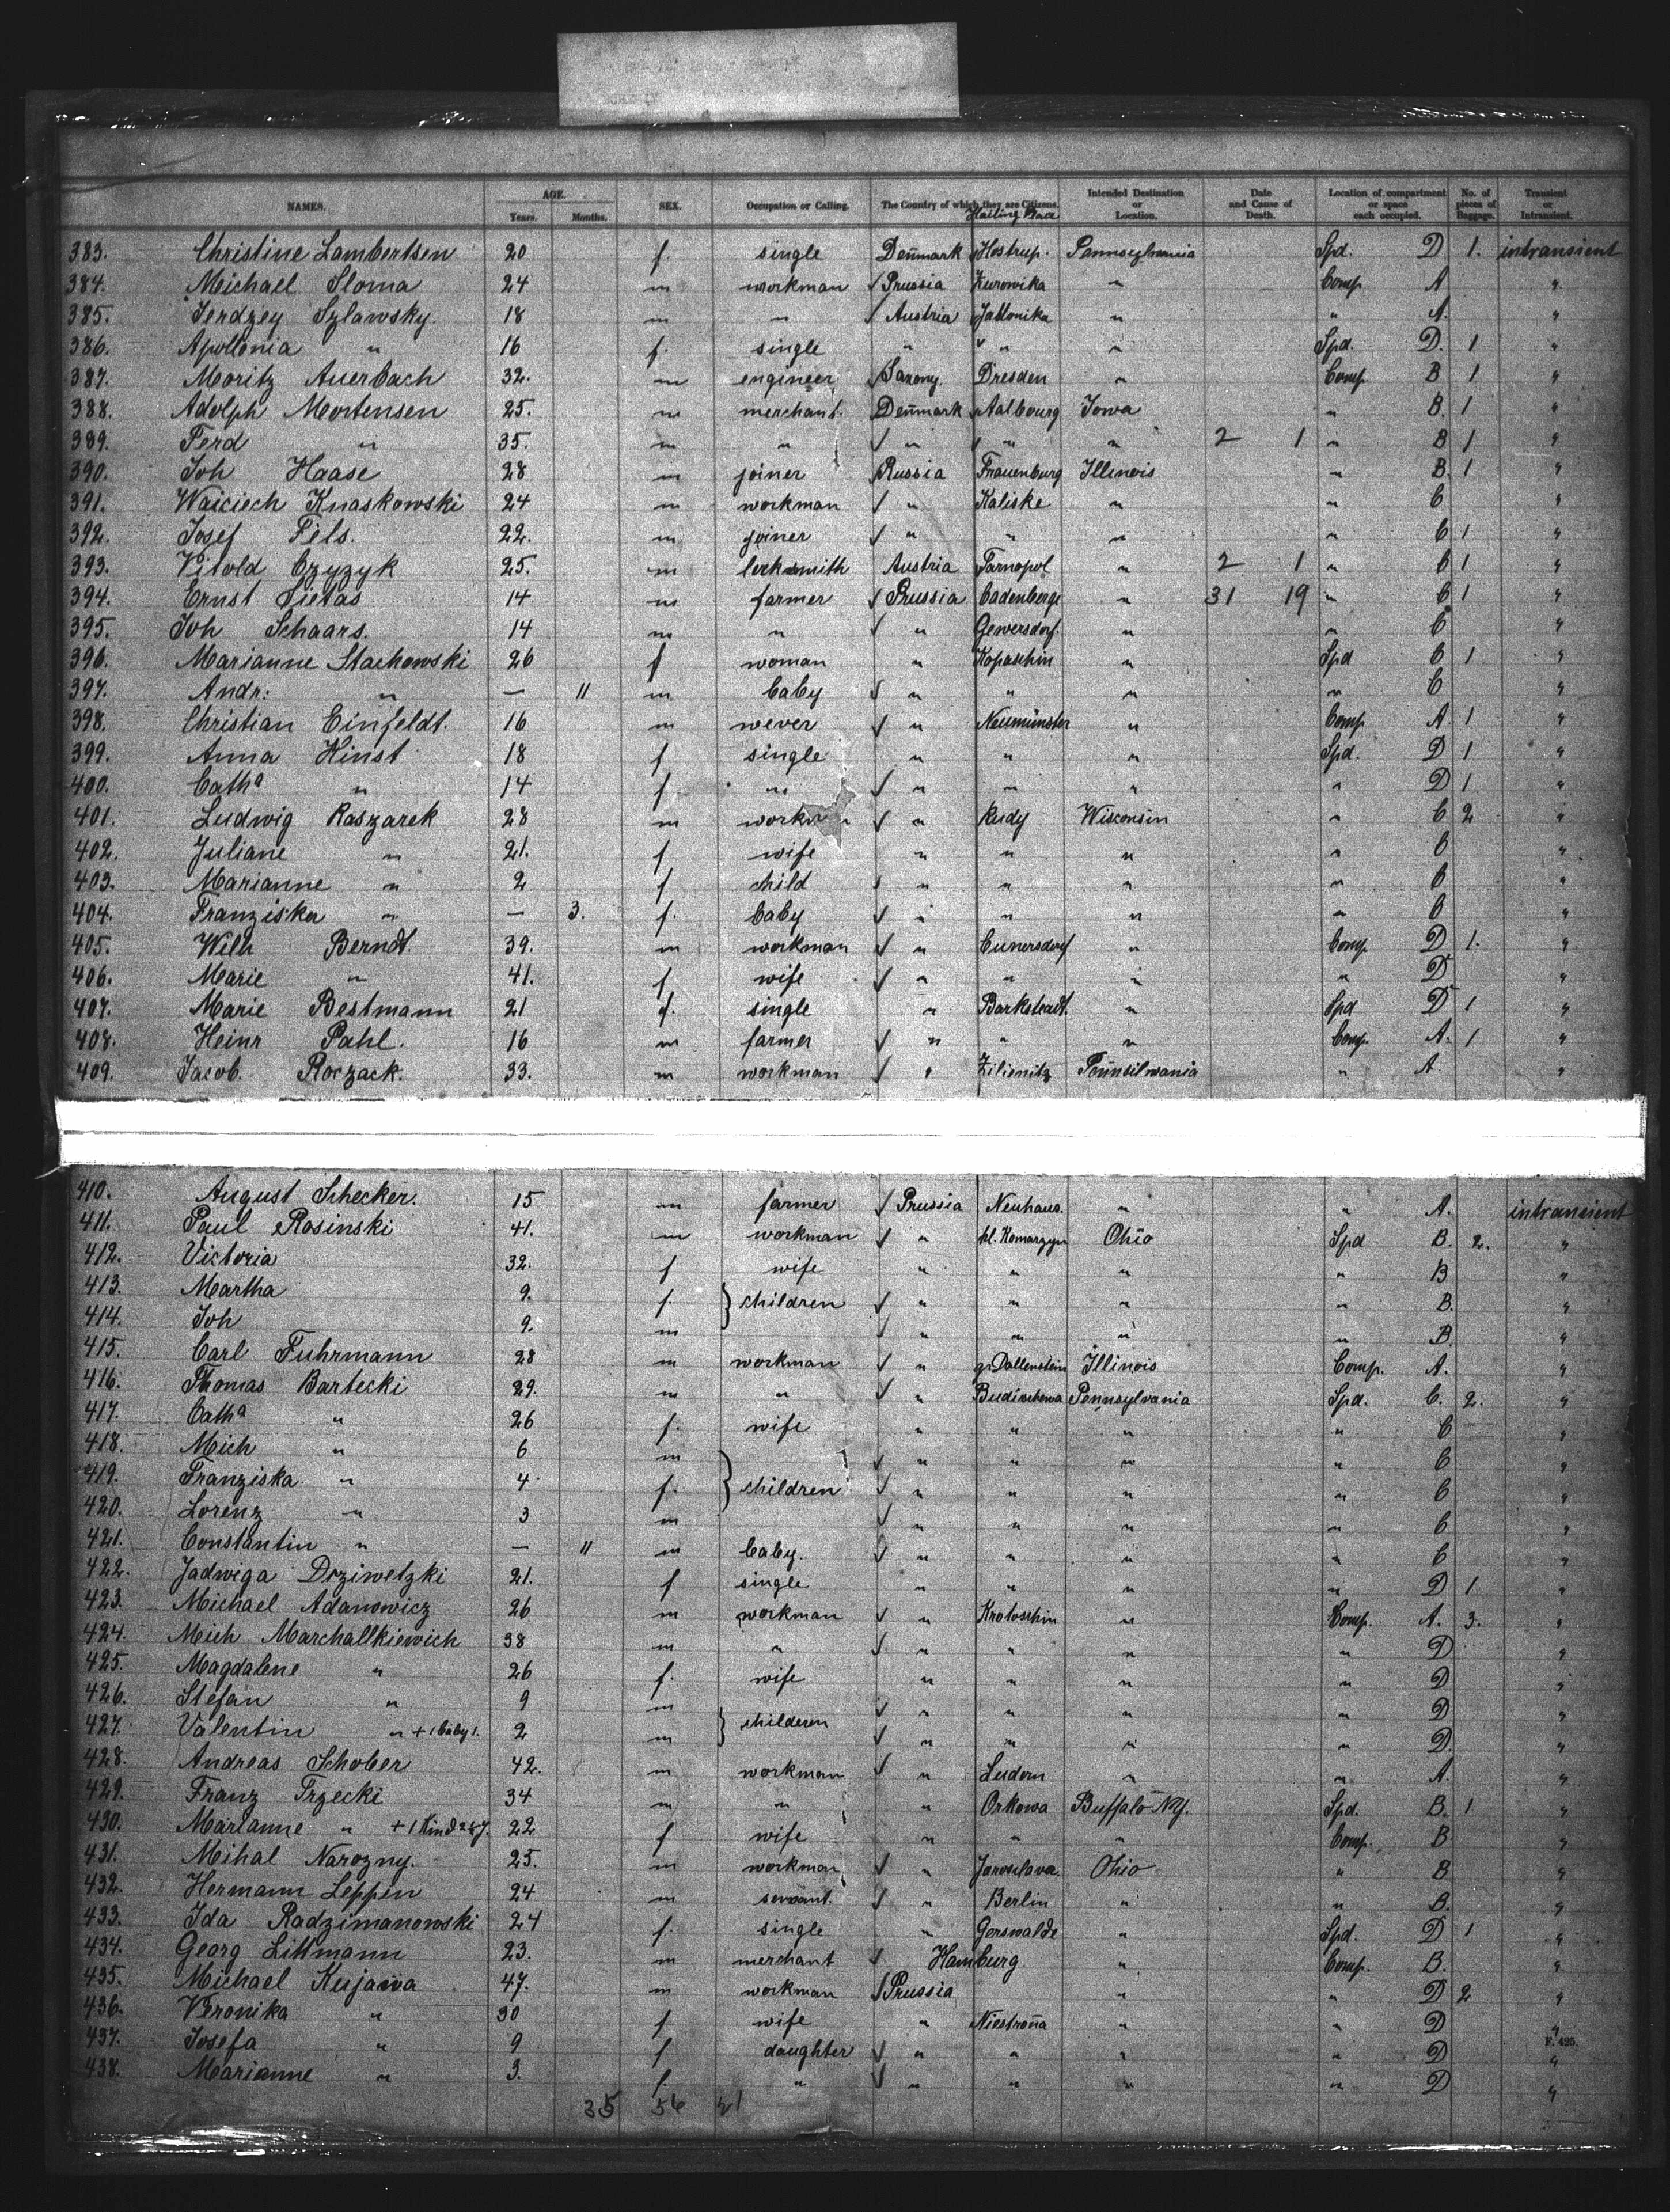 NAMES. AGE. Years. Months. SEX. Occupation or Calling. The Country of which they are Citizens. Intended Destination or Location. Date and Cause of Death. Location of compartment or space each occupied. No. of pieces of Baggage. Transient or Intransient.
383. Christine Lambertsen 20 f. single Denmark Hostrup. Pennsylvania Spd. D 1. intransient
384. Michael Sloma 24 m workman Prussia Zurowika " Comp A "
385. Jerdzey Szlawsky 18 m " Austria Jablonika " " A. "
386. Apollonia " 16 f. single " " " Spd. D. 1 "
387. Moritz Auerbach 32. m engineer Saxony Dresden " Comp. B 1 "
388. Adolph Mortensen 25. m merchant Denmark Aalbourg Iowa " B. 1 "
389. Ferd " 35. m " " " " 2 1 " B 1 "
390. Joh Haase 28 m joiner Russia Frauenburg Illinois " B. 1 "
391. Waiciech Knaskowski 24 m workman " Kaliske " " C "
392. Josef Fels. 22. m joiner " " " " C 1 "
393. Vitold Czyzyk 25. m locksmith Austria Tarnopol " 2 1 " C 1 "
394. Ernst Sietas 14 m farmer Prussia Cadenberge " 31 19 " C 1 "
395. Joh Schaars. 14 m " " Gewersdorf. " " C "
396. Marianne Stachowski 26 f woman " Kopaschin " Spd C 1 "
397. Andr: " — 11 m baby " " " " C "
398. Christian Einfeldt. 16 m wever " Neumünster " Comp. A 1 "
399. Anna Hinst 18 f single " " " Spd. D 1 "
400. Catha " 14 f " " " " " D 1. "
401. Ludwig Raszarek 28 m " Rudy Wisconsin " C 2 "
402. Juliane " 21. f wife " " " " C "
403. Marianne " 2 f child " " " " C "
404. Franziska " — 3. f. baby " " " " C "
405. Wilh Berndt. 39. m workman " Cunersdorf " Comp. D 1. "
406. Marie " 41. f wife " " " " D "
407. Marie Bestmann 21 f. single " Barkstedt. " Spd D 1 "
408. Heinr Pahl. 16 m farmer " " " Comp. A. 1 "
409. Jacob. Roczack. 33. m workman " Zilienitz Pennsilvania " A "
410. August Schecker. 15 m farmer Prussia Neuhaus. " " A. intransient
411. Paul Rosinski 41. m workman " kl. Komarzyn Ohio Spd B. 2. "
412. Victoria 32. f wife " " " " B "
413. Martha 9. f. children " " " " B. "
414. Joh 9. m " " " " B. "
415. Carl Fuhrmann 28 m workman " gr. Dallenstein Illinois Comp. A. "
416. Thomas Bartecki 29. m " " Budischewa Pennsylvania Spd. C. 2. "
417. Catha " 26 f. wife " " " " C "
418. Mich " 6 m " " " " C "
419. Franziska " 4 f. children " " " " C "
420. Lorenz " 3 m " " " " C "
421. Constantin " — 11 m baby. " " " " C "
422. Jadwiga Drziwetzki 21. f single " " " " D 1 "
423. Michael Adanowicz 26 m workman " Krotoschin " Comp. A. 3. "
424. Mich Marchallkiewich 38 m " " " " " D "
425. Magdalene " 26 f. wife " " " " D "
426. Stefan " 9 m " " " " D "
427. Valentin " + 1 baby 1. 2 m childeren " " " " D. "
428. Andreas Schober 42. m workman " Ludom " " A. "
429. Franz Trzecki 34 m " " Orkowa Buffalo N.Y. Spd. B. 1 "
430. Marianne " + 1 Kind 22 f wife " " " Comp. B "
431. Mihal Narozny. 25. m workman " Jaroslawa Ohio " B "
432. Hermann Leppin 24 m servant. " Berlin " " B. "
433. Ida Radzimanowski 24 f. single " Gerswalde " Spd. D 1 "
434. Georg Littmann 23. m merchant Hamburg " Comp. B. "
435. Michael Kujawa 47. m workman Prussia " " D 2 "
436. Veronika " 30 f wife " Niestrona " " D "
437. Josefa " 9 f daughter " " " " D "
438. Marianne " 3. f. " " " " " D "
F. 425.
35 56 21